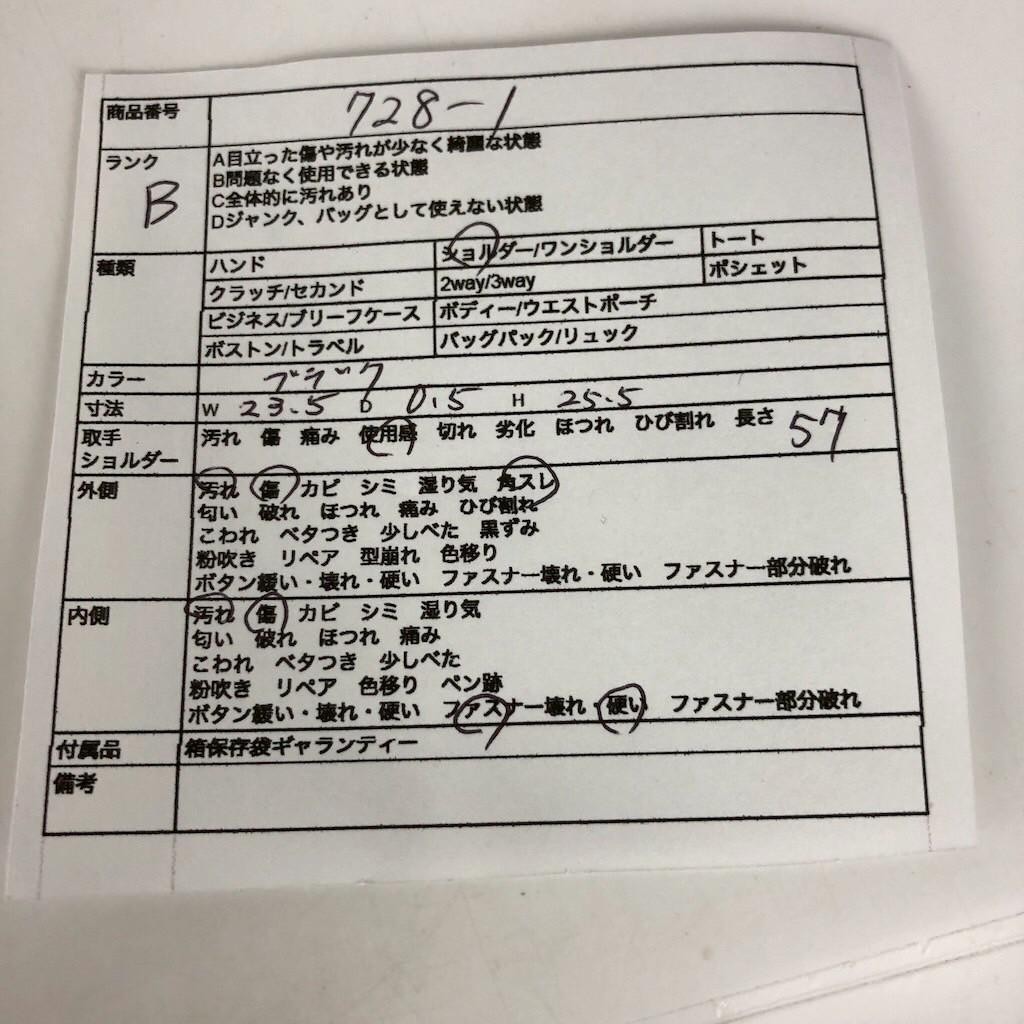 商品番号 728-1
ランク B
A目立った傷や汚れが少なく綺麗な状態
B問題なく使用できる状態
C全体的に汚れあり
Dジャンク、バッグとして使えない状態
種類 ハンド ショルダー/ワンショルダー トート
クラッチ/セカンド 2way/3way ポシェット
ビジネス/ブリーフケース ボディー/ウエストポーチ
ボストン/トラベル バッグパック/リュック
カラー ブラック
寸法 W 23.5 D 0.5 H 25.5
取手 汚れ 傷 痛み 使用感 切れ 劣化 ほつれ ひび割れ 長さ 57
ショルダー
外側 汚れ 傷 カビ シミ 湿り気 角スレ
匂い 破れ ほつれ 痛み ひび割れ
こわれ ベタつき 少しべた 黒ずみ
粉吹き リペア 型崩れ 色移り
ボタン緩い・壊れ・硬い ファスナー壊れ・硬い ファスナー部分破れ
内側 汚れ 傷 カビ シミ 湿り気
匂い 破れ ほつれ 痛み
こわれ ベタつき 少しべた
粉吹き リペア 色移り ペン跡
ボタン緩い・壊れ・硬い ファスナー壊れ・硬い ファスナー部分破れ
付属品 箱保存袋ギャランティー
備考